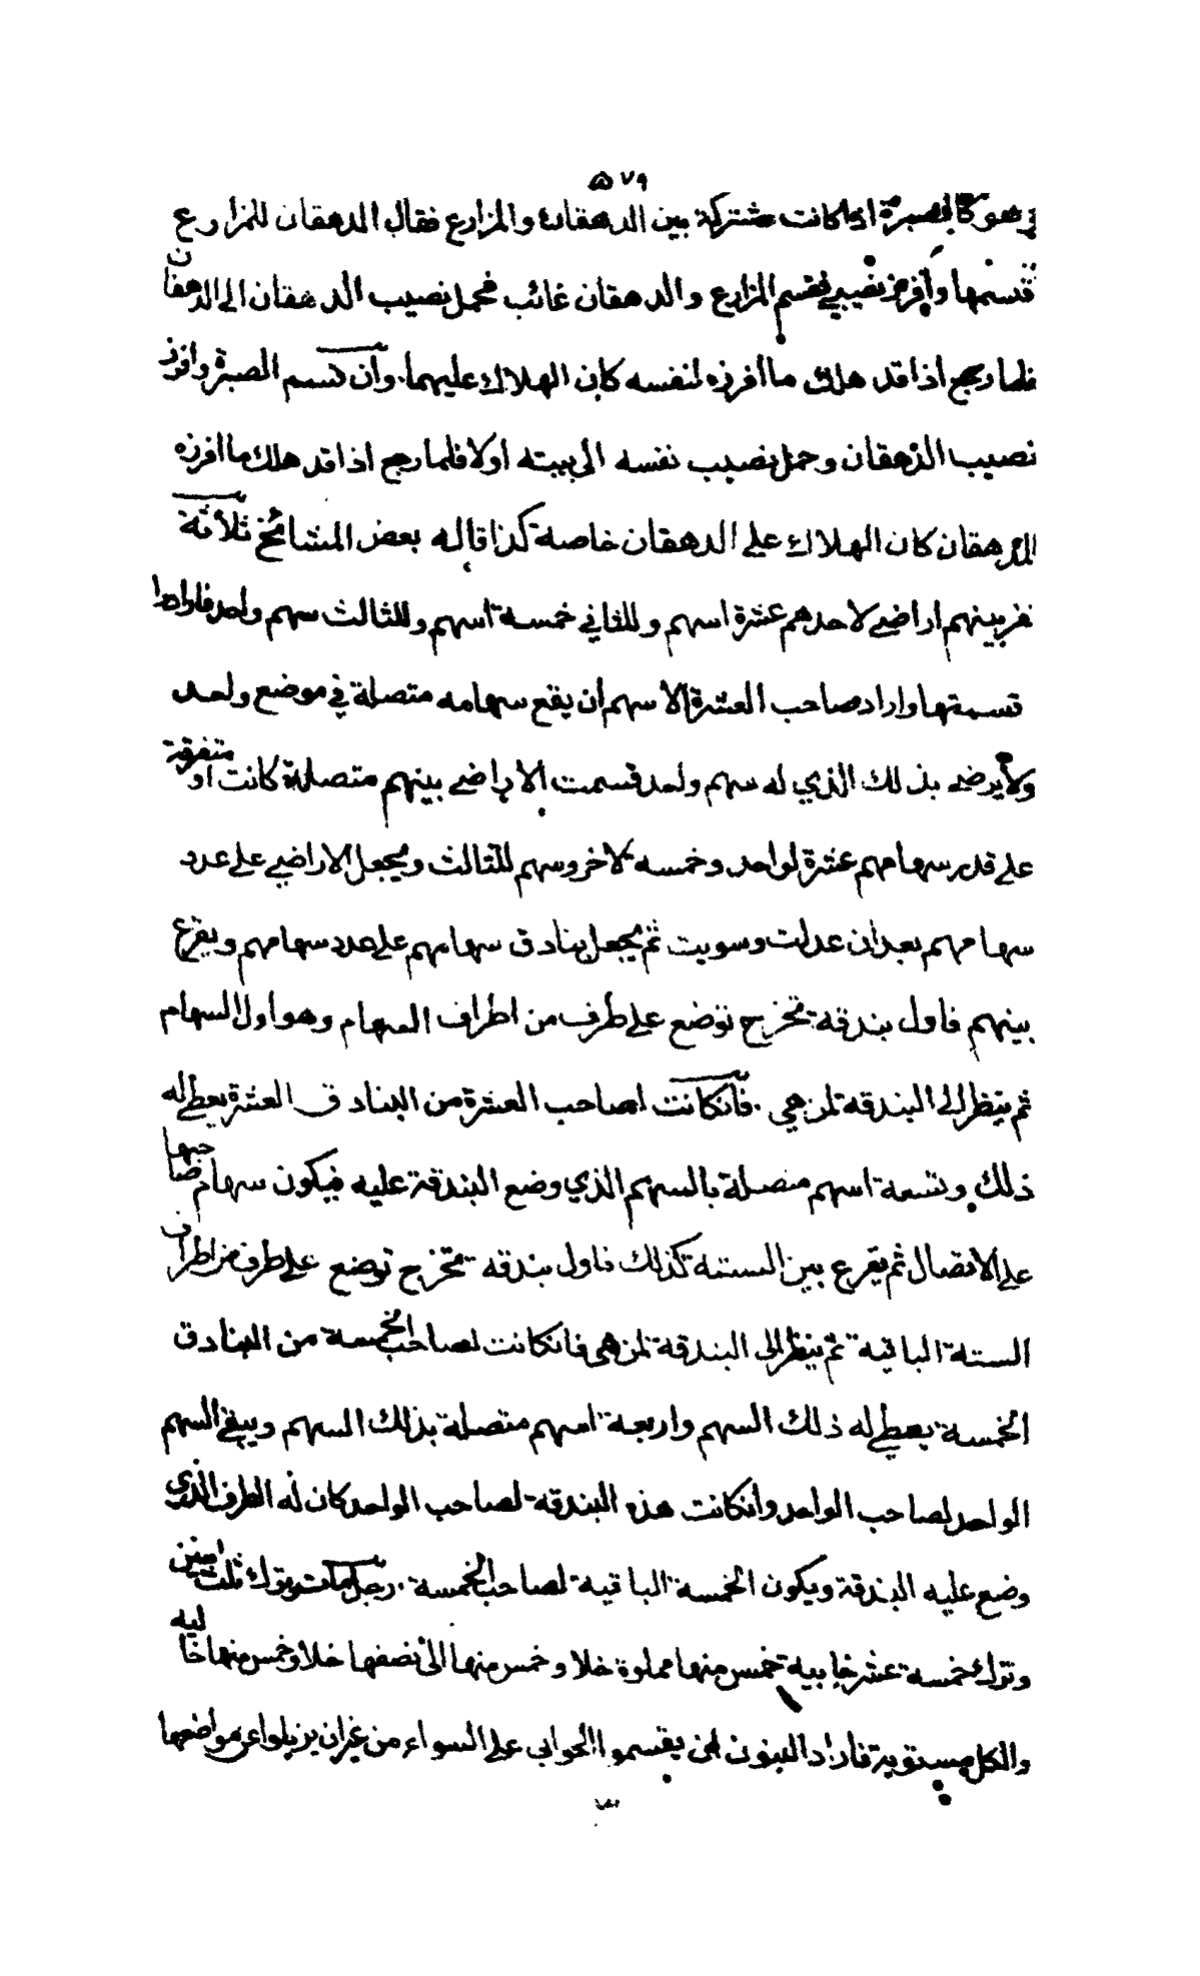 ٥٧٩
وهو كالصبرة اذا كانت مشتركة بين الدهقان والمزارع فقال الدهقان للمزارع
قسمها وافرز نصيبي فقسم المزارع والدهقان غائب فحمل نصيب الدهقان الى الدهقان
فلما رجع اذا قد هلك ما افرزه لنفسه كان الهلاك عليهما وان قسم الصبرة وافرز
نصيب الدهقان وحمل نصيب نفسه الى بيته اولا فلما رجع اذا قد هلك ما افرزه
للدهقان كان الهلاك على الدهقان خاصة كذا قاله بعض المشائخ ثلاثة
نفر بينهم اراضي لاحدهم عشرة اسهم وللثاني خمسة اسهم وللثالث سهم واحد فارادوا
قسمتها واراد صاحب العشرة الاسهم ان يقع سهامه متصلة في موضع واحد
ولا يرضى بذلك الذي له سهم واحد قسمت الاراضي بينهم متصلة كانت او متفرقة
على قدر سهامهم عشرة لواحد وخمسة لاخر وسهم للثالث ويجعل الاراضي على عدد
سهامهم بعد ان عدلت وسويت ثم يجعل بنادق سهامهم على عدد سهامهم ويقرع
بينهم فاول بندقة تخرج توضع على طرف من اطراف السهام وهو اول السهام
ثم ينظر الى البندقة لمن هي فانكانت لصاحب العشرة من البنادق العشرة يعطى له
ذلك وتسعة اسهم متصلة بالسهم الذي وضع البندقة عليه فيكون سهام صاحبها
على الاتصال ثم يقرع بين الستة كذلك فاول بندقة تخرج توضع على طرف من اطراف
الستة الباقية ثم ينظر الى البندقة لمن هي فانكانت لصاحب الخمسة من البنادق
الخمسة يعطى له ذلك السهم واربعة اسهم متصلة بذلك السهم ويبقى السهم
الواحد لصاحب الواحد وانكانت هذه البندقة لصاحب الواحد كان له الطرف الذي
وضع عليه البندقة ويكون الخمسة الباقية لصاحب الخمسة رجل مات وترك ثلث ابنين
وترك خمسة عشر خابية خمس منها مملوة خلا وخمس منها الى نصفها خلا وخمس منها خالية
والكل مستوية فاراد البنون ان يقسموا الخوابي على السواء من غير ان يزيلوا عن مواضعها